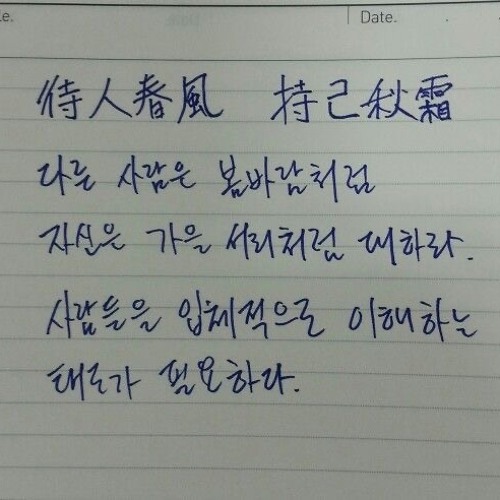 te.
Date.
待人春風 持己秋霜
다른 사람은 봄바람처럼
자신은 가을 서리처럼 대하라.
사람들을 입체적으로 이해하는
태도가 필요하다.